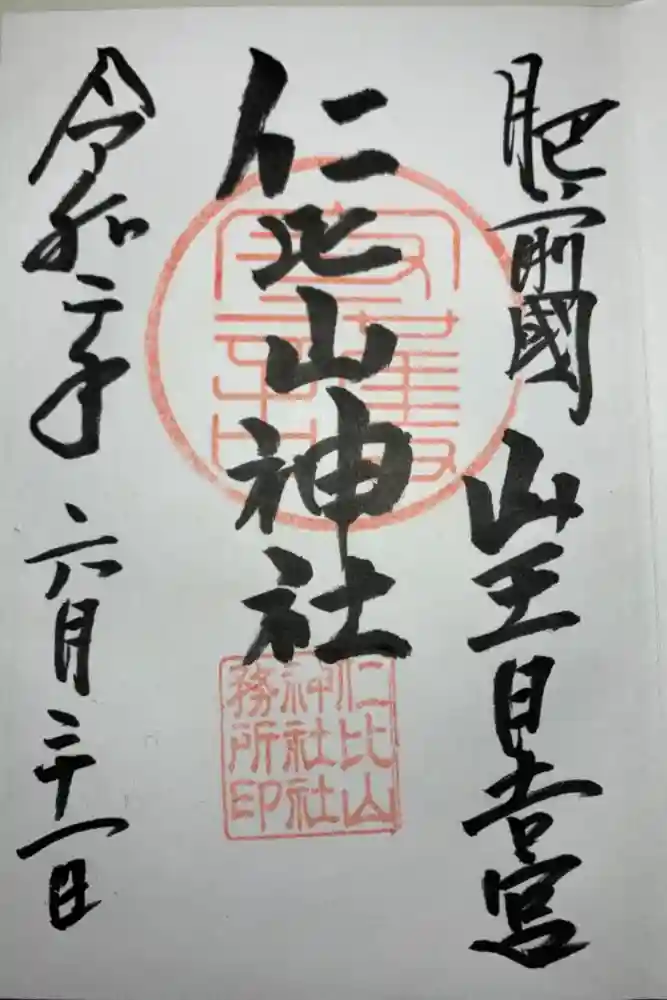 肥前國 山王日吉宮
仁比山神社
仁比山
神社社
務所印
令和二年 六月二十一日